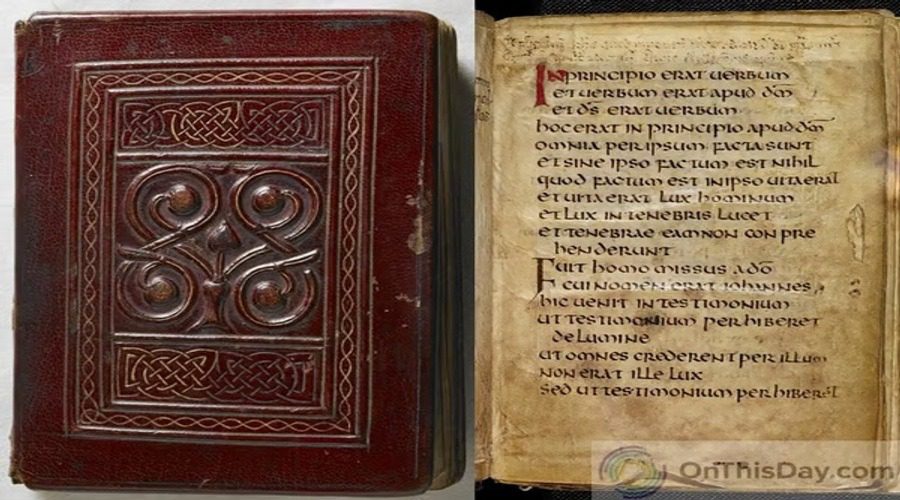 IN PRINCIPIO ERAT UERBUM
ET UERBUM ERAT APUD DM̄
ET DS̄ ERAT UERBUM
HOC ERAT IN PRINCIPIO APUD DM̄
OMNIA PER IPSUM FACTA SUNT
ET SINE IPSO FACTUM EST NIHIL
QUOD FACTUM EST IN IPSO UITA EST
ET UITA ERAT LUX HOMINUM
ET LUX IN TENEBRIS LUCET
ET TENEBRAE EAM NON CONPRE
HENDERUNT
FUIT HOMO MISSUS A DO̅
CUI NOMEN ERAT IOHANNES
HIC UENIT IN TESTIMONIUM
UT TESTIMONIUM PERHIBERET
DE LUMINE
UT OMNES CREDERENT PER ILLUM
NON ERAT ILLE LUX
SED UT TESTIMONIUM PERHIBERET
OnThisDay.com